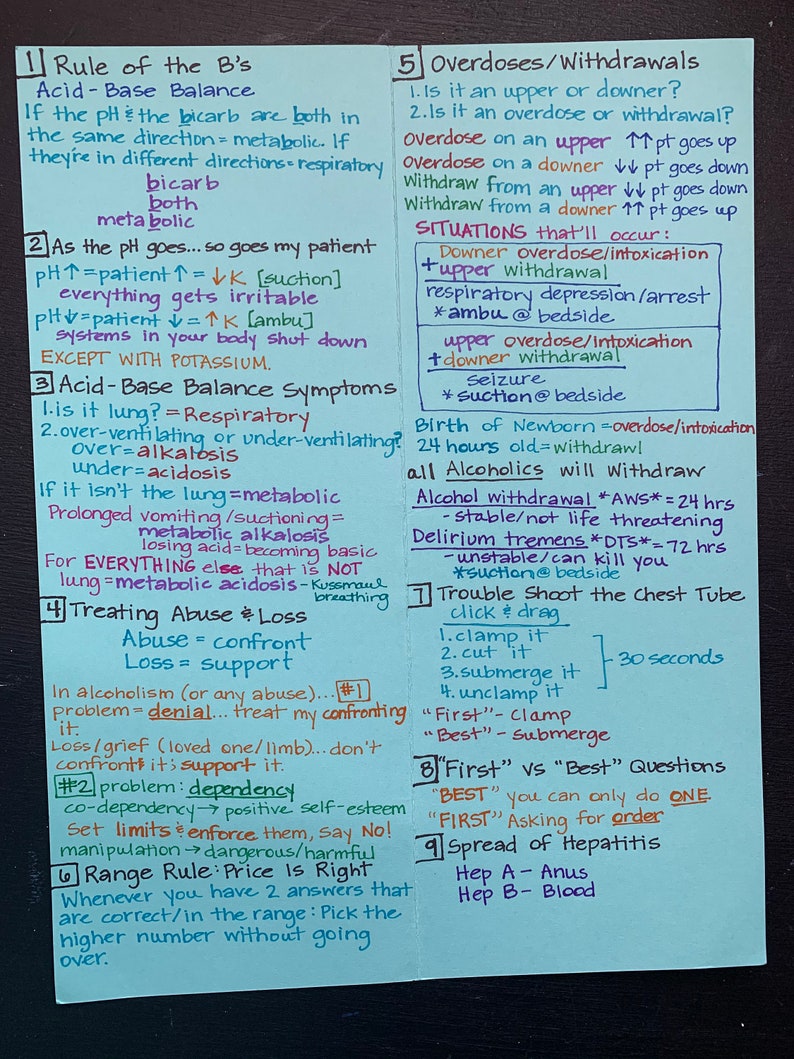 1 Rule of the B's
Acid-Base Balance
If the pH & the bicarb are both in
the same direction = metabolic. If
they're in different directions = respiratory
bicarb
both
metabolic
2 As the pH goes... so goes my patient
pH↑ = patient↑ = ↓K [suction]
everything gets irritable
pH↓ = patient ↓ = ↑K [ambu]
systems in your body shut down
EXCEPT WITH POTASSIUM.
3 Acid-Base Balance Symptoms
1. is it lung? = Respiratory
2. over-ventilating or under-ventilating?
over = alkalosis
under = acidosis
If it isn't the lung = metabolic
Prolonged vomiting/suctioning =
metabolic alkalosis
losing acid = becoming basic
For EVERYTHING else that is NOT
lung = metabolic acidosis - Kussmaul
breathing
4 Treating Abuse & Loss
Abuse = confront
Loss = support
In alcoholism (or any abuse)... #1
problem = denial... treat my confronting
it.
Loss/grief (loved one/limb)... don't
confront it; support it.
#2 problem: dependency
co-dependency → positive self-esteem
Set limits & enforce them, say No!
manipulation → dangerous/harmful
6 Range Rule: Price Is Right
Whenever you have 2 answers that
are correct/in the range: Pick the
higher number without going
over.
5 Overdoses/Withdrawals
1. Is it an upper or downer?
2. Is it an overdose or withdrawal?
Overdose on an upper ↑↑ pt goes up
Overdose on a downer ↓↓ pt goes down
Withdraw from an upper ↓↓ pt goes down
Withdraw from a downer ↑↑ pt goes up
SITUATIONS that'll occur:
Downer overdose/intoxication
+ upper withdrawal
respiratory depression/arrest
*ambu @ bedside
upper overdose/intoxication
+ downer withdrawal
seizure
*suction @ bedside
Birth of Newborn = overdose/intoxication
24 hours old = withdrawl
all Alcoholics will Withdraw
Alcohol withdrawal *AWS* = 24 hrs
- stable/not life threatening
Delirium tremens *DTS* = 72 hrs
- unstable/can kill you
*suction @ bedside
7 Trouble Shoot the Chest Tube
click & drag
1. clamp it
2. cut it
3. submerge it
4. unclamp it
30 seconds
"First" - Clamp
"Best" - Submerge
8 "First" vs "Best" Questions
"BEST" you can only do ONE
"FIRST" Asking for order
9 Spread of Hepatitis
Hep A - Anus
Hep B - Blood